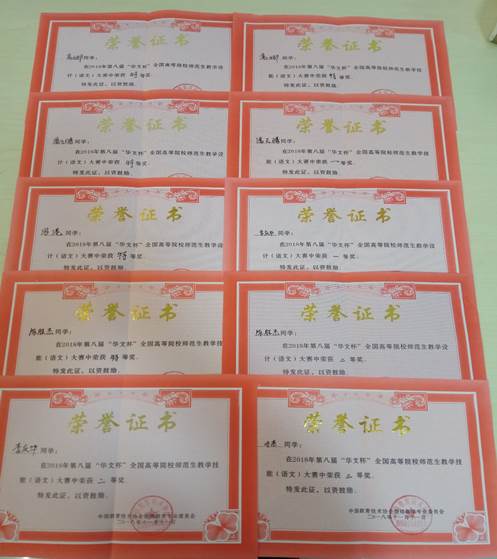 荣誉证书
同学：
在2018年第八届“华文杯”全国高等院校师范生教学设
计（语文）大赛中荣获 特 等奖。
特发此证，以资鼓励。
荣誉证书
同学：
在2018年第八届“华文杯”全国高等院校师范生教学技
能（语文）大赛中荣获 特 等奖。
特发此证，以资鼓励。
荣誉证书
同学：
在2018年第八届“华文杯”全国高等院校师范生教学技
能（语文）大赛中荣获 特 等奖。
特发此证，以资鼓励。
荣誉证书
同学：
在2018年第八届“华文杯”全国高等院校师范生教学设
计（语文）大赛中荣获 一 等奖。
特发此证，以资鼓励。
荣誉证书
同学：
在2018年第八届“华文杯”全国高等院校师范生教学设
计（语文）大赛中荣获 特 等奖。
特发此证，以资鼓励。
荣誉证书
同学：
在2018年第八届“华文杯”全国高等院校师范生教学设
计（语文）大赛中荣获 一 等奖。
特发此证，以资鼓励。
荣誉证书
陈胜杰 同学：
在2018年第八届“华文杯”全国高等院校师范生教学技
能（语文）大赛中荣获 特 等奖。
特发此证，以资鼓励。
荣誉证书
陈胜杰 同学：
在2018年第八届“华文杯”全国高等院校师范生教学设
计（语文）大赛中荣获 二 等奖。
特发此证，以资鼓励。
荣誉证书
同学：
在2018年第八届“华文杯”全国高等院校师范生教学技
能（语文）大赛中荣获 二 等奖。
特发此证，以资鼓励。
中国教育技术协会
二〇一八年十一月十一日
荣誉证书
同学：
在2018年第八届“华文杯”全国高等院校师范生教学技
能（语文）大赛中荣获 二 等奖。
特发此证，以资鼓励。
中国教育技术协会
二〇一八年十一月十一日